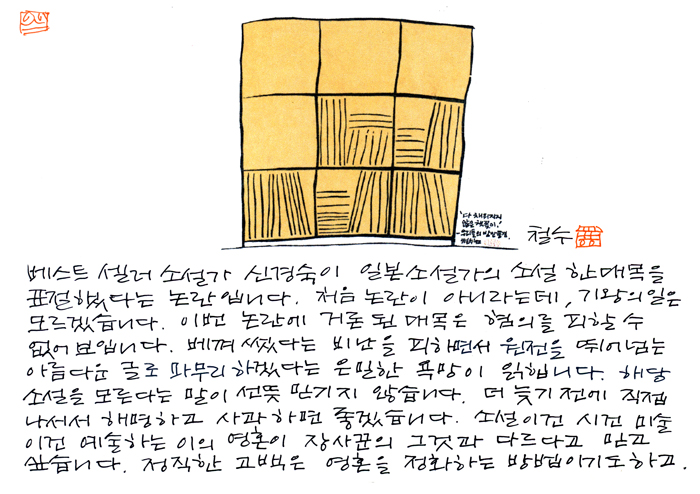 철수
베스트 셀러 소설가 신경숙이 일본소설가의 소설 한대목을
표절했다는 논란입니다. 처음 논란이 아니라는데, 기왕의일은
모르겠습니다. 이번 논란에 거론된 대목은 혐의를 피할 수
없어 보입니다. 베껴 썼다는 비난을 피하면서 원전을 뛰어넘는
아름다운 글로 마무리하겠다는 은밀한 욕망이 읽힙니다. 해당
소설을 모른다는 말이 선뜻 믿기지 않습니다. 더 늦기전에 직접
나서서 해명하고 사과하면 좋겠습니다. 소설이건 시건 미술
이건 예술하는 이의 영혼이 장사꾼의 그것과 다르다고 믿고
싶습니다. 정직한 고백은 영혼을 정화하는 방법이기도하고.